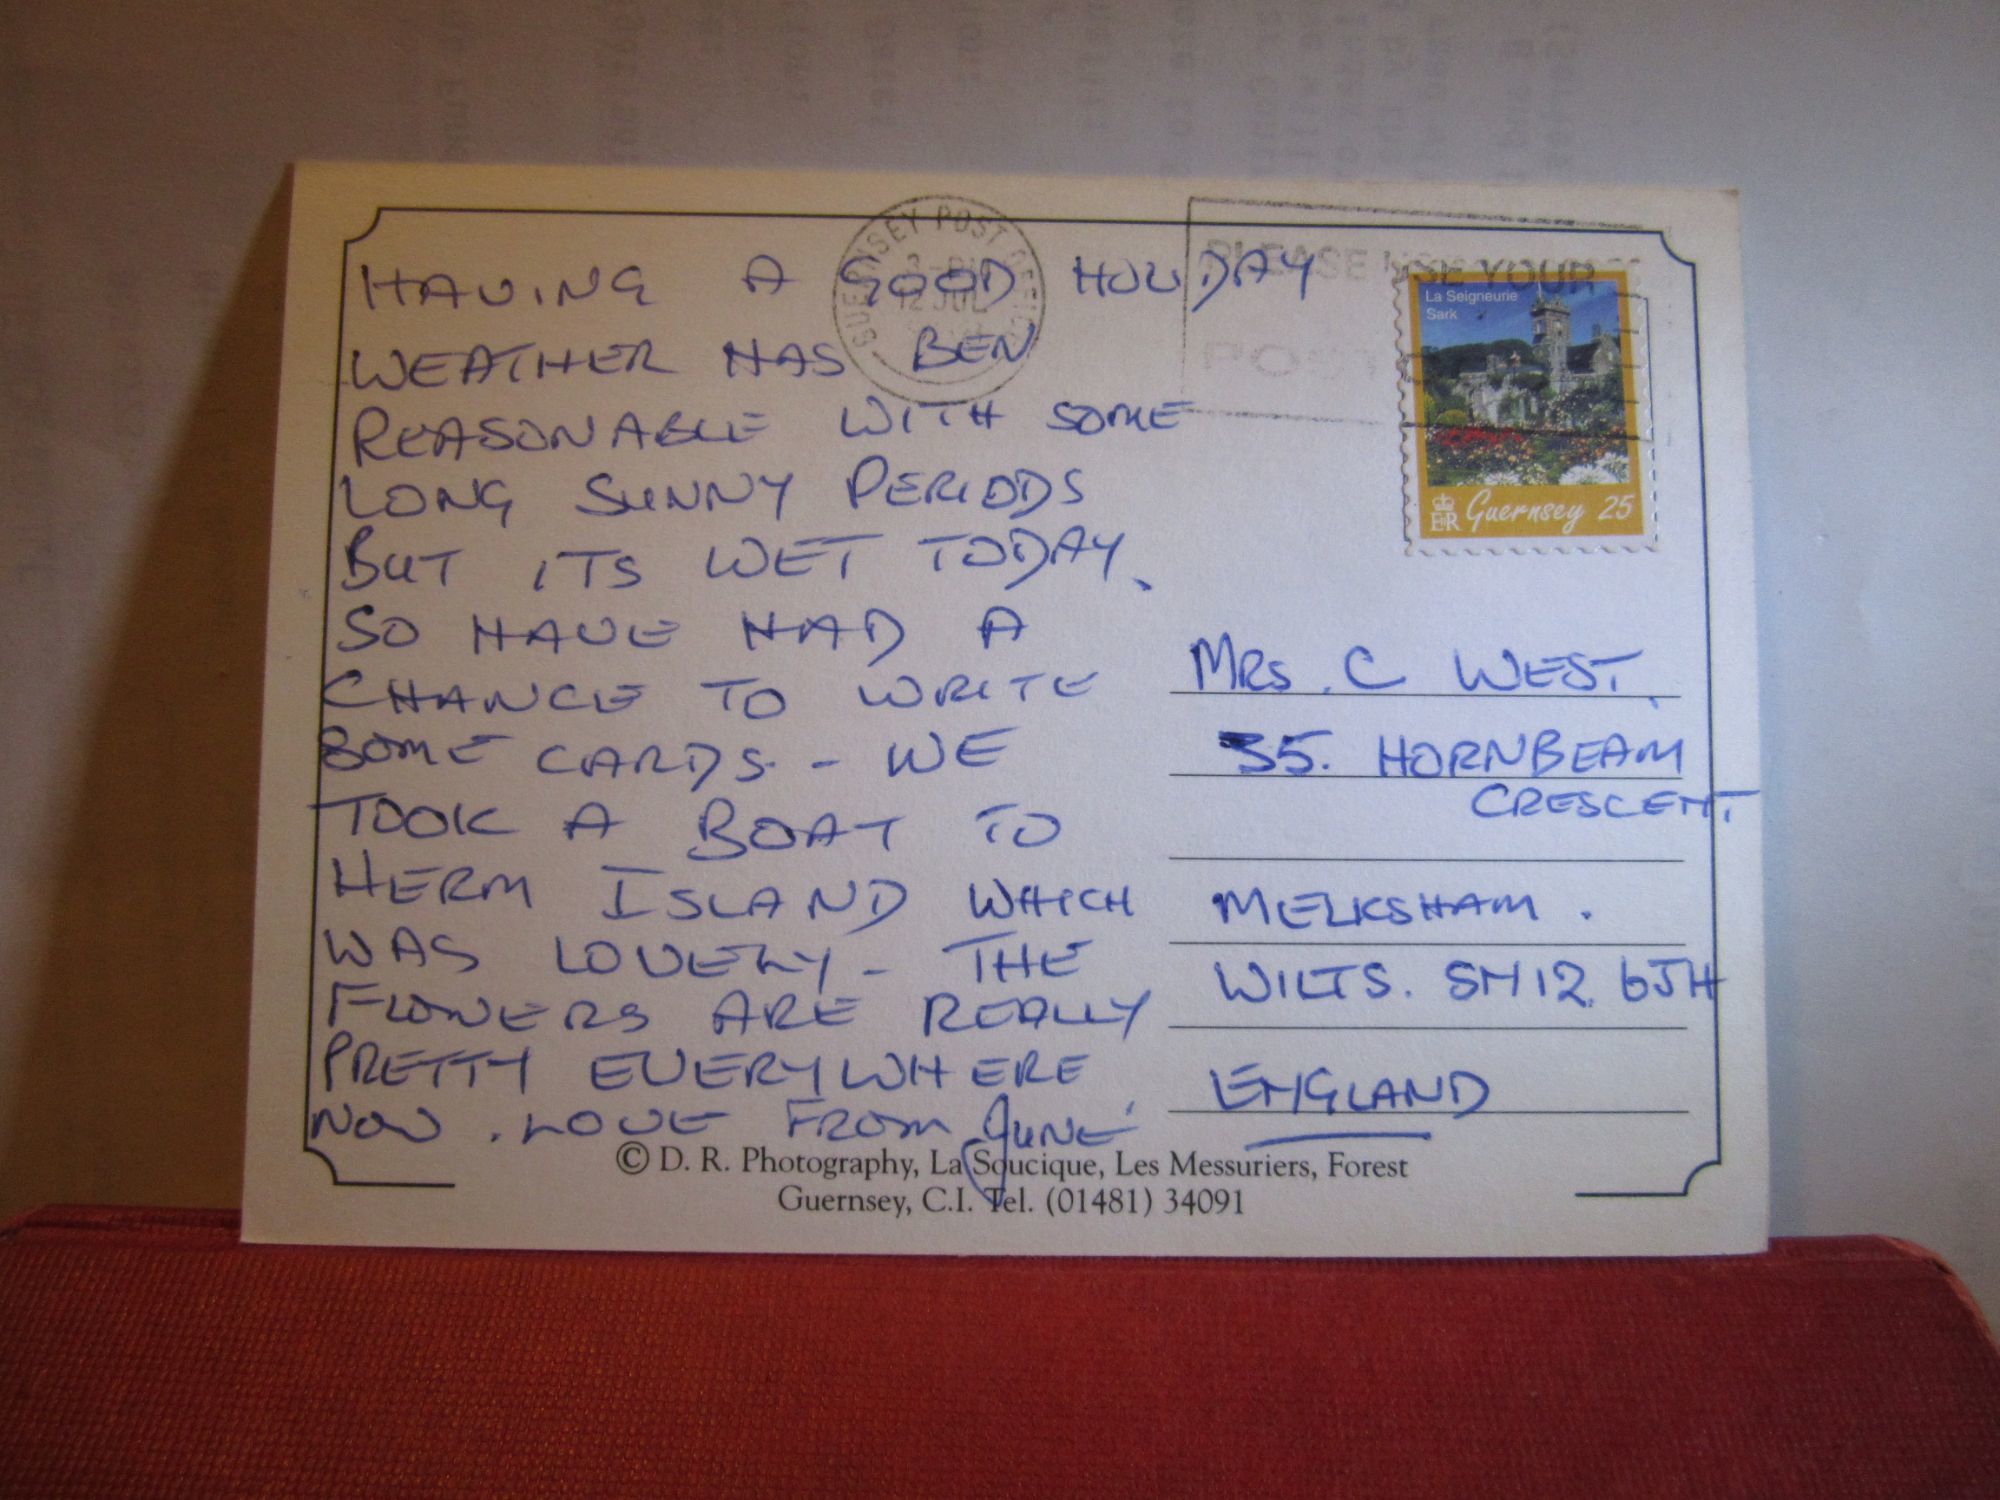 HAVING A GOOD HOLIDAY
WEATHER HAS BEN
REASONABLE WITH SOME
LONG SUNNY PERIODS
BUT ITS WET TODAY.
SO HAVE HAD A
CHANCE TO WRITE
SOME CARDS - WE
TOOK A BOAT TO
HERM ISLAND WHICH
WAS LOVELY - THE
FLOWERS ARE REALLY
PRETTY EVERYWHERE
NOW. LOVE FROM JUNE
GUERNSEY POST OFFICE
12 JUL
PLEASE USE YOUR
La Seigneurie
Sark
ER Guernsey 25
MRS. C WEST.
35. HORNBEAM
CRESCENT,
MELKSHAM.
WILTS. SN12 6JH
ENGLAND
© D. R. Photography, La Soucique, Les Messuriers, Forest
Guernsey, C.I. Tel. (01481) 34091